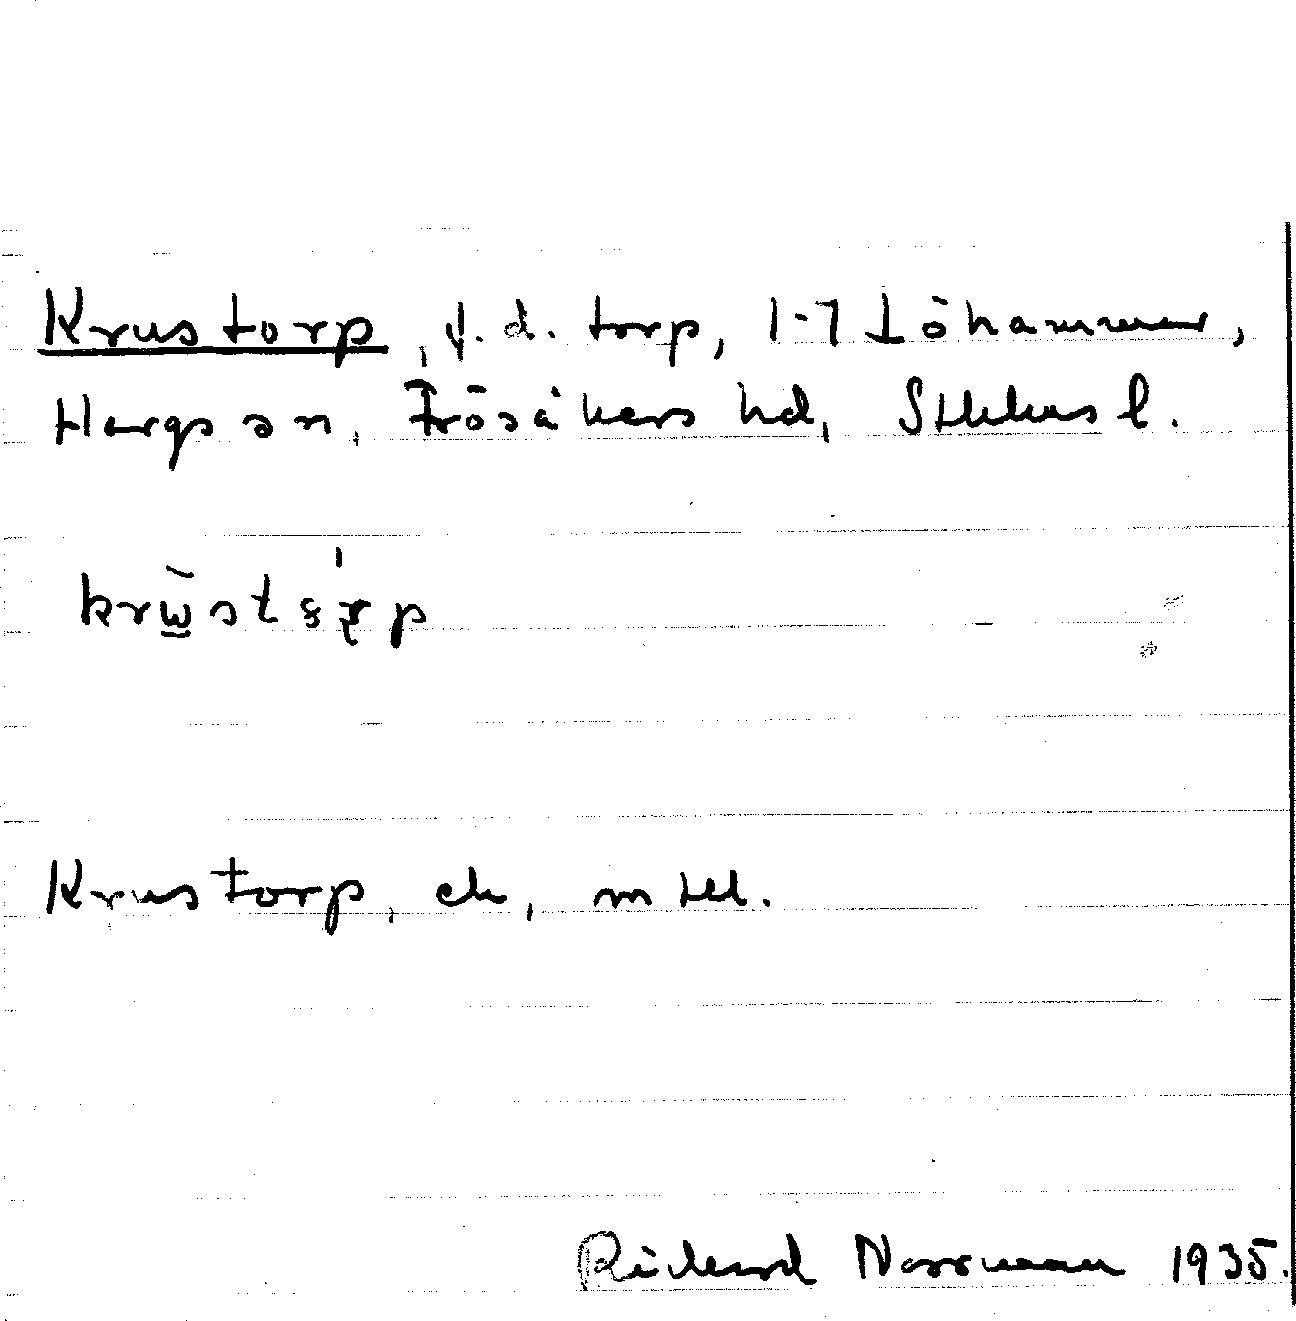 Krustorp, f.d. torp, 1-7 Löhammar,
Hargs sn, Frösåkers hd, Sthlms l.
krustǫrp
Krustorp, ek, mtl.
Rickard Norrman 1935.